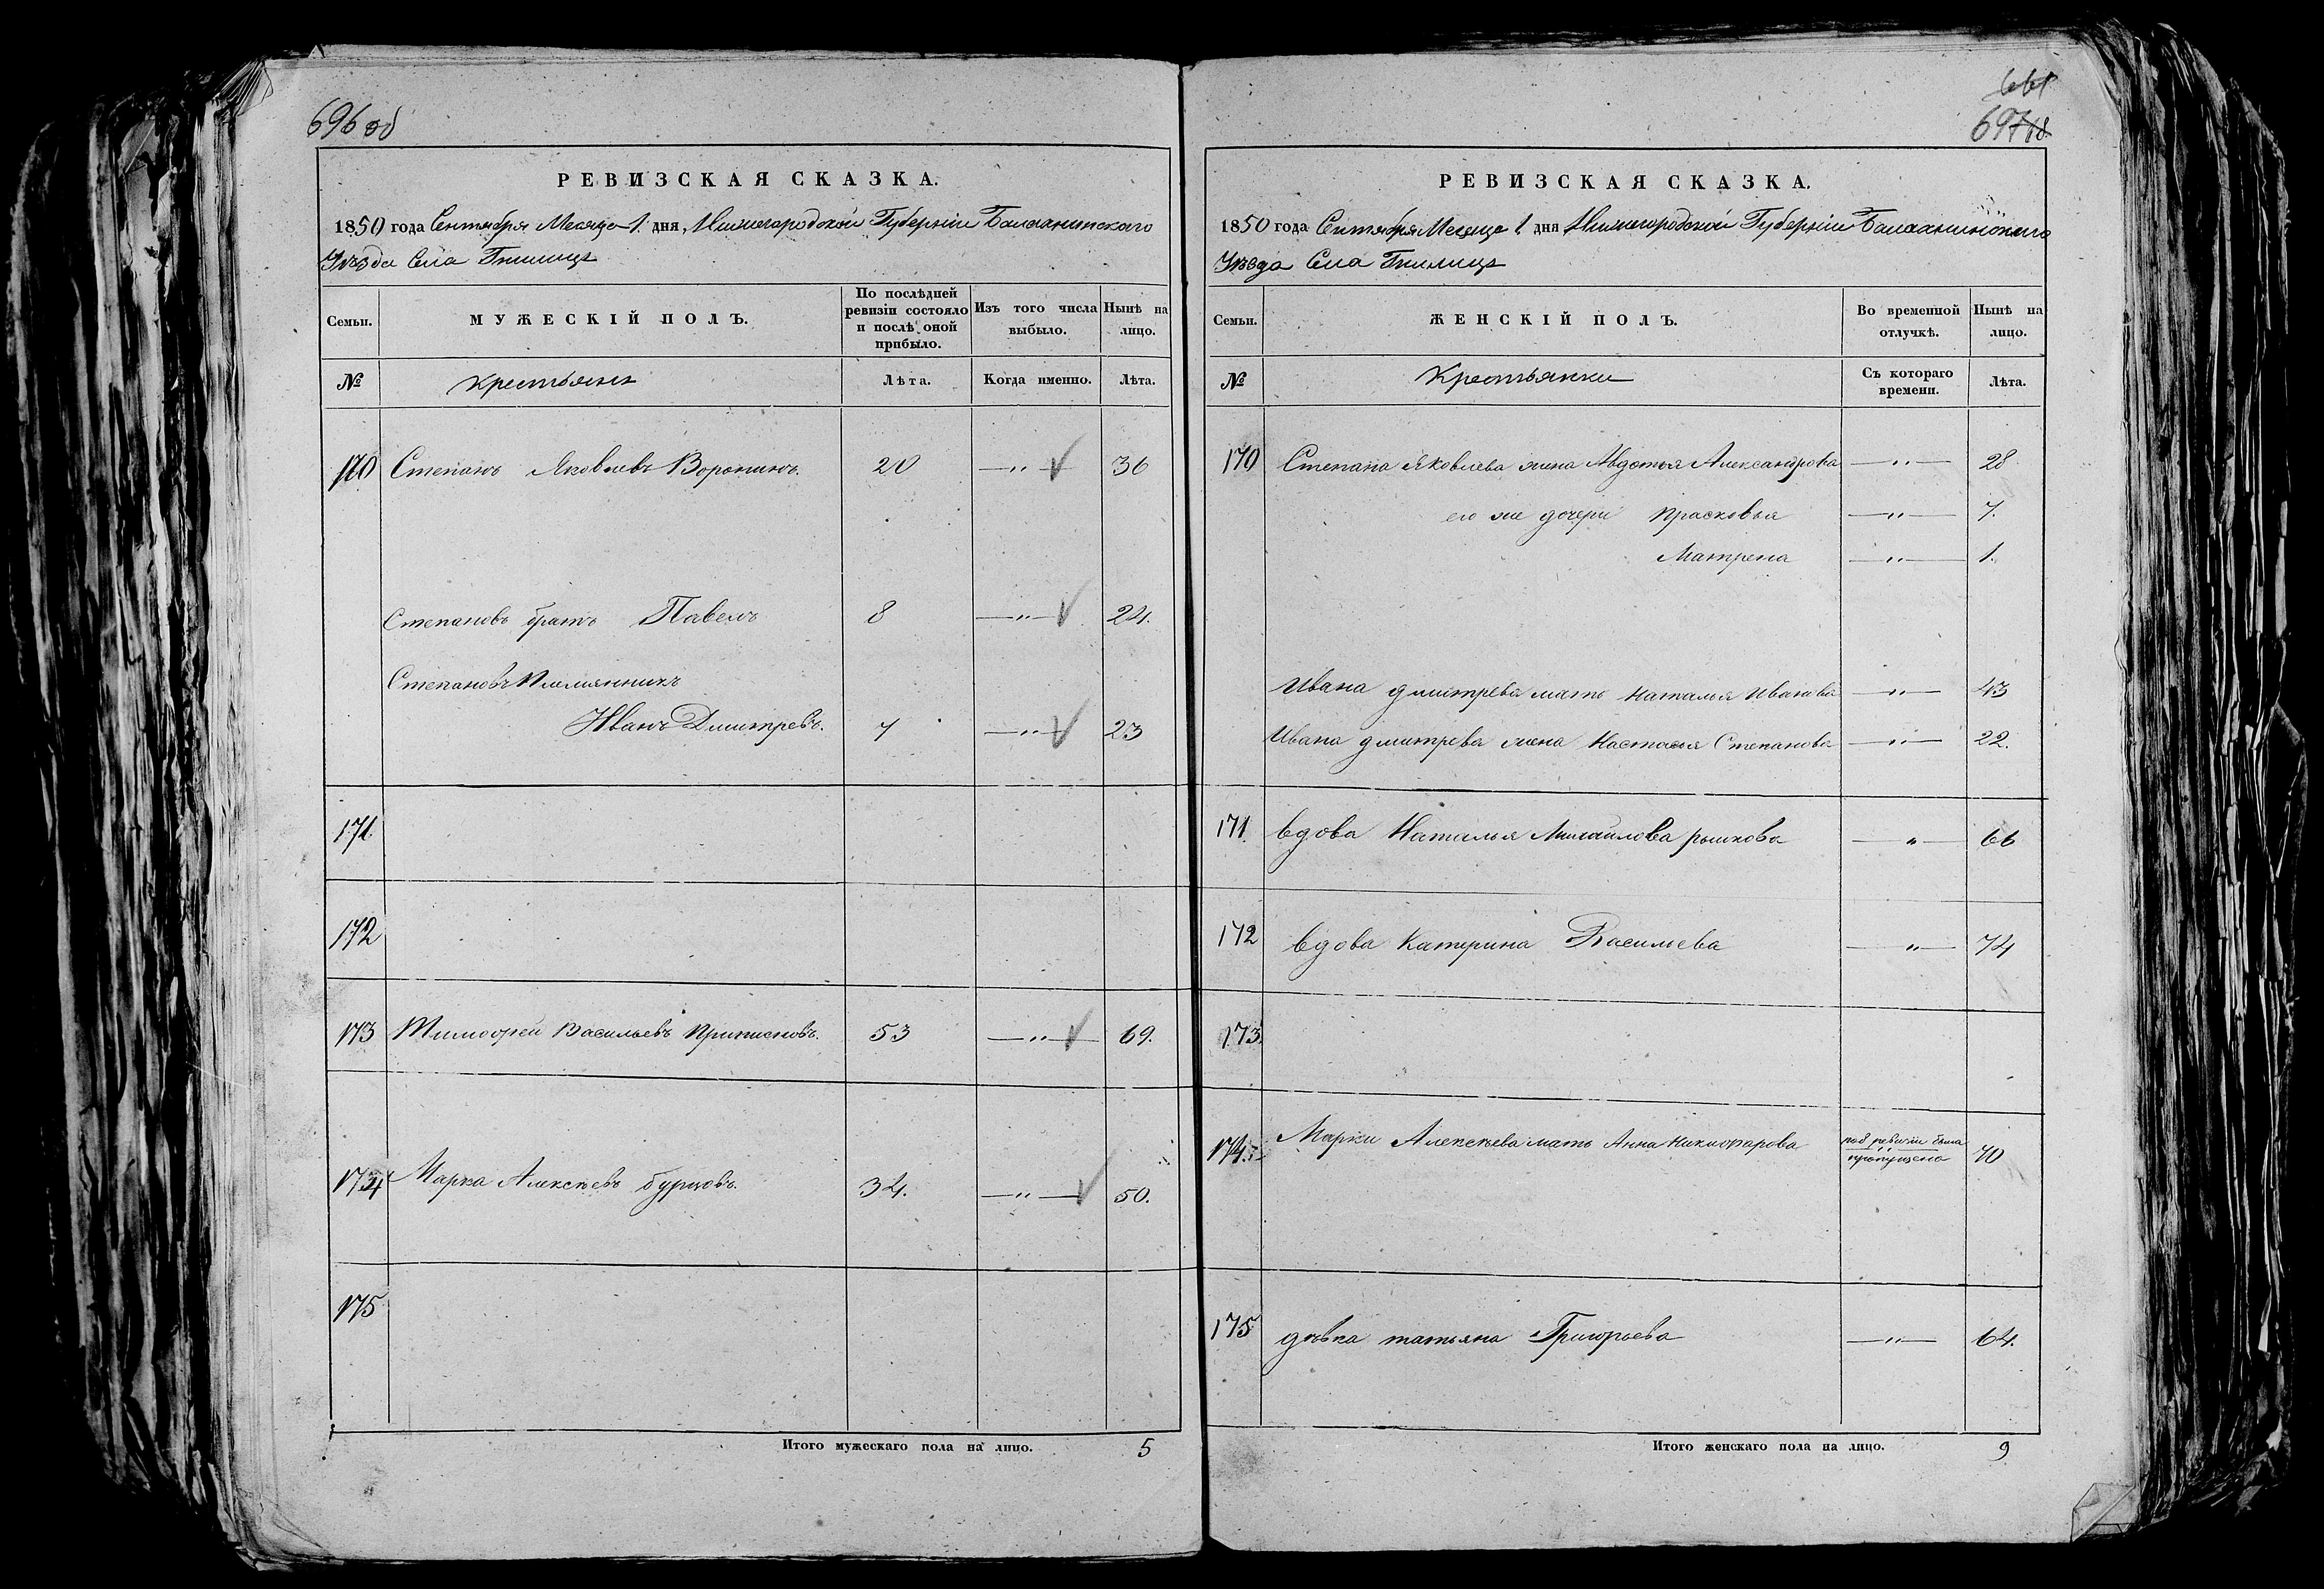 696 об
РЕВИЗСКАЯ СКАЗКА.
1850 года Сентября Месяца 1. дня, Нижегородской Губерніи Балахнинскаго
Уѣзда Села Гнилицъ
Семьи.
МУЖЕСКІЙ ПОЛЪ.
По послѣдней ревизіи состояло и послѣ оной прибыло.
Изъ того числа выбыло.
Нынѣ на лицо.
№
крестьянъ
Лѣта.
Когда именно.
Лѣта.
170 Степанъ Яковлевъ Воронинъ. 20 —"— 36
Степановъ братъ Павелъ 8 —"— 24.
Степановъ племянникъ
Иванъ Дмитревъ. 7 —"— 23
171.
172
173 Тимофей Васильевъ Приписновъ. 53 —"— 69.
174 Марка Алексѣевъ бурцовъ. 34. —"— 50.
175
Итого мужескаго пола на лицо. 5
661
697
РЕВИЗСКАЯ СКАЗКА.
1850 года Сентября Месяца 1 дня Нижегородской Губерніи Балахнинскаго
Уѣзда Села Гнилицъ
Семьи.
ЖЕНСКІЙ ПОЛЪ.
Во временной отлучкѣ.
Нынѣ на лицо.
№
Крестьянки
Съ котораго времени.
Лѣта.
170 Степана Яковлева жена Авдотья Александрова —"— 28
его же дочери Прасковья —"— 7.
Матрена —"— 1.
Ивана дмитрева мать Наталья Иванова —"— 43
Ивана дмитрева жена Настасья Степанова —"— 22.
171. вдова Наталья Михайлова рышкова —"— 66
172 вдова Катерина Васильева —"— 74
173.
174. Марки Алексѣева мать Анна Никифорова ревизіи была пропущена 70
175 дѣвка татьяна Григорьева —"— 64.
Итого женскаго пола на лицо. 9